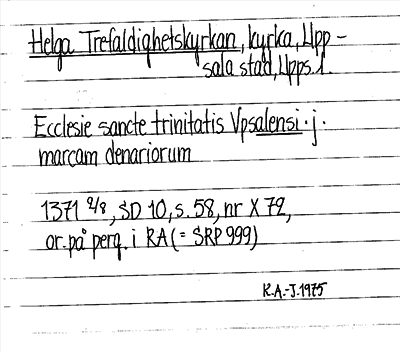 Helga Trefaldighetskyrkan, kyrka, Upp-
sala stad, Upps. l.
Ecclesie sancte trinitatis Vpsalensi · j ·
marcam denariorum
1371 2/8, SD 10, s. 58, nr X 72,
or. på perg. i RA (= SRP 999)
R.A.-J. 1975